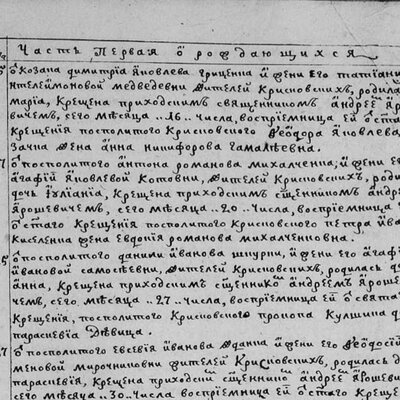 Часть Первая ѡ рождающихся
ѿ козака димитрїа Яковлева гриценка и жени Его татїани
нтелеймоновой медведевни жителей Крисковскихъ, родила
марїа, Крещена приходскимъ священникомъ андреемъ Яр
вичемъ, сего мѣсяца ..16.. числа, воспрїемница Ей ѿ ст
Крещенїя посполитого Крисковского Ѳеодора Яковлева
зачна жена анна никифорова Гамалѣевна.
7 ѿ посполитого антона романова михалченка, и жени е
агафїи Яковлевой Котовни, жителей Крисковскихъ, роди
дочь Іулїанїа, Крещена приходскимъ сщенникомъ андре
Ярошевичемъ, сего мѣсяца ..20.. числа, воспрїемница
ѿ стаго Крещенїя посполитого Крисковского петра ива
Киселенка жена Евдокїя романова михалченковна.
5 ѿ посполитого данила иванова шкурки, и жени его агафї
ивановой самосѣевни, жителей Крисковскихъ, родилась д
анна, Крещена приходскимъ сщенникомъ андреемъ Яроше
чемъ, сего мѣсяца ..27.. числа, воспрїемница ей ѿ свята
Крещенїя, посполитого Крисковского прокопа Кулшина д
параскевїа Дѣвица.
7 ѿ посполитого Евсевїя иванова и жени его Ѳеодосїи
меновой мирочниковни жителей Крисковскихъ, родилась д
параскевїя, Крещена приходским сщенником андреем Ярошев
сего мѣсяца ..30.. числа воспрїемница ей ѿ стаго Креще